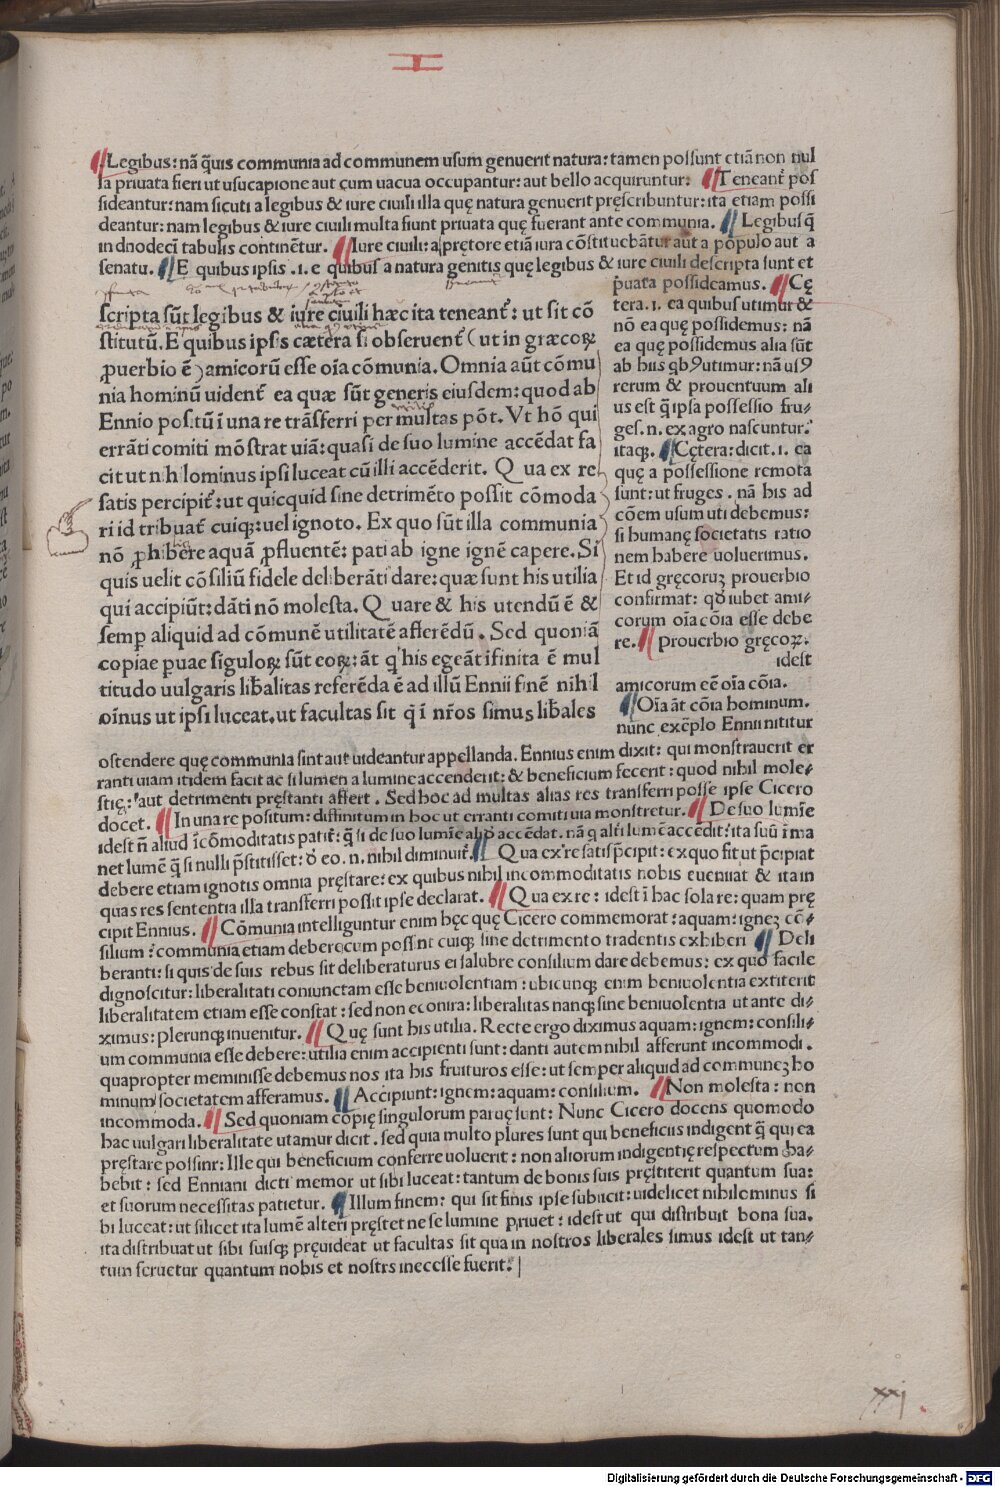 I
¶Legibus: nã q̃uis communia ad communem usum genuerit natura: tamen possunt etiã non nul
la priuata fieri ut usucapione aut cum uacua occupantur: aut bello acquiruntur. ¶Teneant᷑ pos
sideantur: nam sicuti a legibus & iure ciuili illa quę natura genuerit pręscribuntur: ita etiam possi
deantur: nam legibus & iure ciuili multa fiunt priuata quę fuerant ante communia. ¶ Legibus q̃
in duodecĩ tabulis continẽtur. ¶Iure ciuili: a prętore etiã iura cõstituebãtur aut a populo aut a
senatu. ¶E quibus ipsis .i. e quibus a natura genitis quę legibus & iure ciuili descripta sunt et
scripta sũt legibus & iure ciuili hæc ita teneant᷑: ut sit cõ
stitutũ. E quibus ipsis cætera si obseruent᷑ ( ut in græcoꝝ
ꝓuerbio ẽ ) amicorũ esse oĩa cõmunia. Omnia aũt cõmu
nia hominũ uident᷑ ea quæ sũt generis eiusdem: quod ab
Ennio positũ ĩ una re trãsferri per multas põt. Vt hõ qui
errãti comiti mõstrat uiã: quasi de suo lumine accẽdat fa
cit ut nihilominus ipsi luceat cũ illi accẽderit. Q ua ex re
satis percipit᷑: ut quicquid sine detrimẽto possit cõmoda
ri id tribuat᷑ cuiqꝫ: uel ignoto. Ex quo sũt illa communia
nõ ꝓhibere aquã ꝓfluentẽ: pati ab igne ignẽ capere. Si
quis uelit cõsiliũ fidele deliberãti dare: quæ sunt his utilia
qui accipiũt: dãti nõ molesta. Q uare & his utendũ ẽ &
semꝑ aliquid ad cõmunẽ utilitatẽ afferẽdũ. Sed quoniã
copiae ꝑuae sĩguloꝝ sũt eoꝝ: ãt q' his egeãt ĩfinita ẽ mul
titudo uulgaris lib̃alitas referẽda ẽ ad illũ Ennii finẽ nihil
oĩnus ut ipsi luceat. ut facultas sit q̃ ĩ nr̃os simus lib̃ales
p̃uata possideamus. ¶Cę
tera. i. ea quibus utimur &
nõ ea quę possidemus: nã
ea quę possidemus alia sũt
ab hiis qbꝰ utimur: nã usꝰ
rerum & prouentuum ali
us est q̃ ipsa possessio fru-
ges. n. ex agro nascuntur.
itaqꝫ. ¶Cętera: dicit. i. ea
quę a possessione remota
sunt: ut fruges . nã his ad
cõem usum uti debemus:
si humanę societatis ratio
nem habere uoluerimus.
Et id gręcoruꝫ prouerbio
confirmat: qđ iubet ami-
corum oĩa cõia esse debe
re. ¶ prouerbio gręcoꝝ.
idest
amicorum eẽ oĩa cõia.
¶Oĩa ãt cõia hominum.
nunc exẽplo Ennii nititur
ostendere quę communia sint aut uideantur appellanda. Ennius enim dixit: qui monstrauerit er
ranti uiam itidem facit ac si lumen a lumine accenderit: & beneficium fecerit: quod nihil mole-
stię: aut detrimenti pręstanti affert . Sed hoc ad multas alias res transferri posse ipse Cicero
docet. ¶In una re positum: diffinitum in hoc ut erranti comiti uia monstretur. ¶De suo lumĩe
idest ñ aliud ĩcõmoditatis patit᷑: q̃ si de suo lumĩe aliqđ accẽdat. nã q alt̃i lumẽ accẽdit: ita suũ ĩ ma
net lumẽ q̃ si nulli p̃stitisset: đ eo. n. nihil diminuit᷑. ¶ Q ua ex re satis p̃cipit: ex quo fit ut p̃cipiat
debere etiam ignotis omnia pręstare: ex quibus nihil incommoditatis nobis eueniat & ita in
quas res sententia illa transferri possit ipse declarat. ¶Q ua ex re: idest ĩ hac sola re: quam prę
cipit Ennius. ¶Cõmunia intelliguntur enim hęc quę Cicero commemorat: aquam: igneꝫ cõ-
silium : communia etiam debere cum possint cuiqꝫ sine detrimento tradentis exhiberi ¶ Deli
beranti: si quis de suis rebus sit deliberaturus ei salubre consilium dare debemus: ex quo facile
dignoscitur: liberalitati coniunctam esse beniuolentiam: ubicunqꝫ enim beniuolentia extiterit
liberalitatem etiam esse constat: sed non econtra: liberalitas nanqꝫ sine beniuolentia ut ante di-
ximus: plerunqꝫ inuenitur. ¶Q uę sunt his utilia. Recte ergo diximus aquam: ignem: consili-
um communia esse debere: utilia enim accipienti sunt: danti autem nihil afferunt incommodi .
quapropter meminisse debemus nos ita his fruituros esse: ut semper aliquid ad communeꝫ ho
minum societatem afferamus. ¶Accipiunt: ignem: aquam: consilium. ¶Non molesta: non
incommoda. ¶Sed quoniam copię singulorum paruę sunt: Nunc Cicero docens quomodo
hac uulgari liberalitate utamur dicit . sed quia multo plures sunt qui beneficiis indigent q̃ qui ea
pręstare possint: Ille qui beneficium conferre uoluerit: non aliorum indigentię respectum ha-
bebit: sed Enniani dicti memor ut sibi luceat: tantum de bonis suis pręstiterit quantum sua:
et suorum necessitas patietur. ¶Illum finem: qui sit finis ipse subiicit: uidelicet nihilominus si
bi luceat: ut scilicet ita lumẽ alteri pręstet ne se lumine priuet: idest ut qui distribuit bona sua.
ita distribuat ut sibi suisqꝫ pręuideat ut facultas sit qua in nostros liberales simus idest ut tan-
tum seruetur quantum nobis et nostrs inecesse fuerit.
xxj
Digitalisierung gefördert durch die Deutsche Forschungsgemeinschaft - DFG